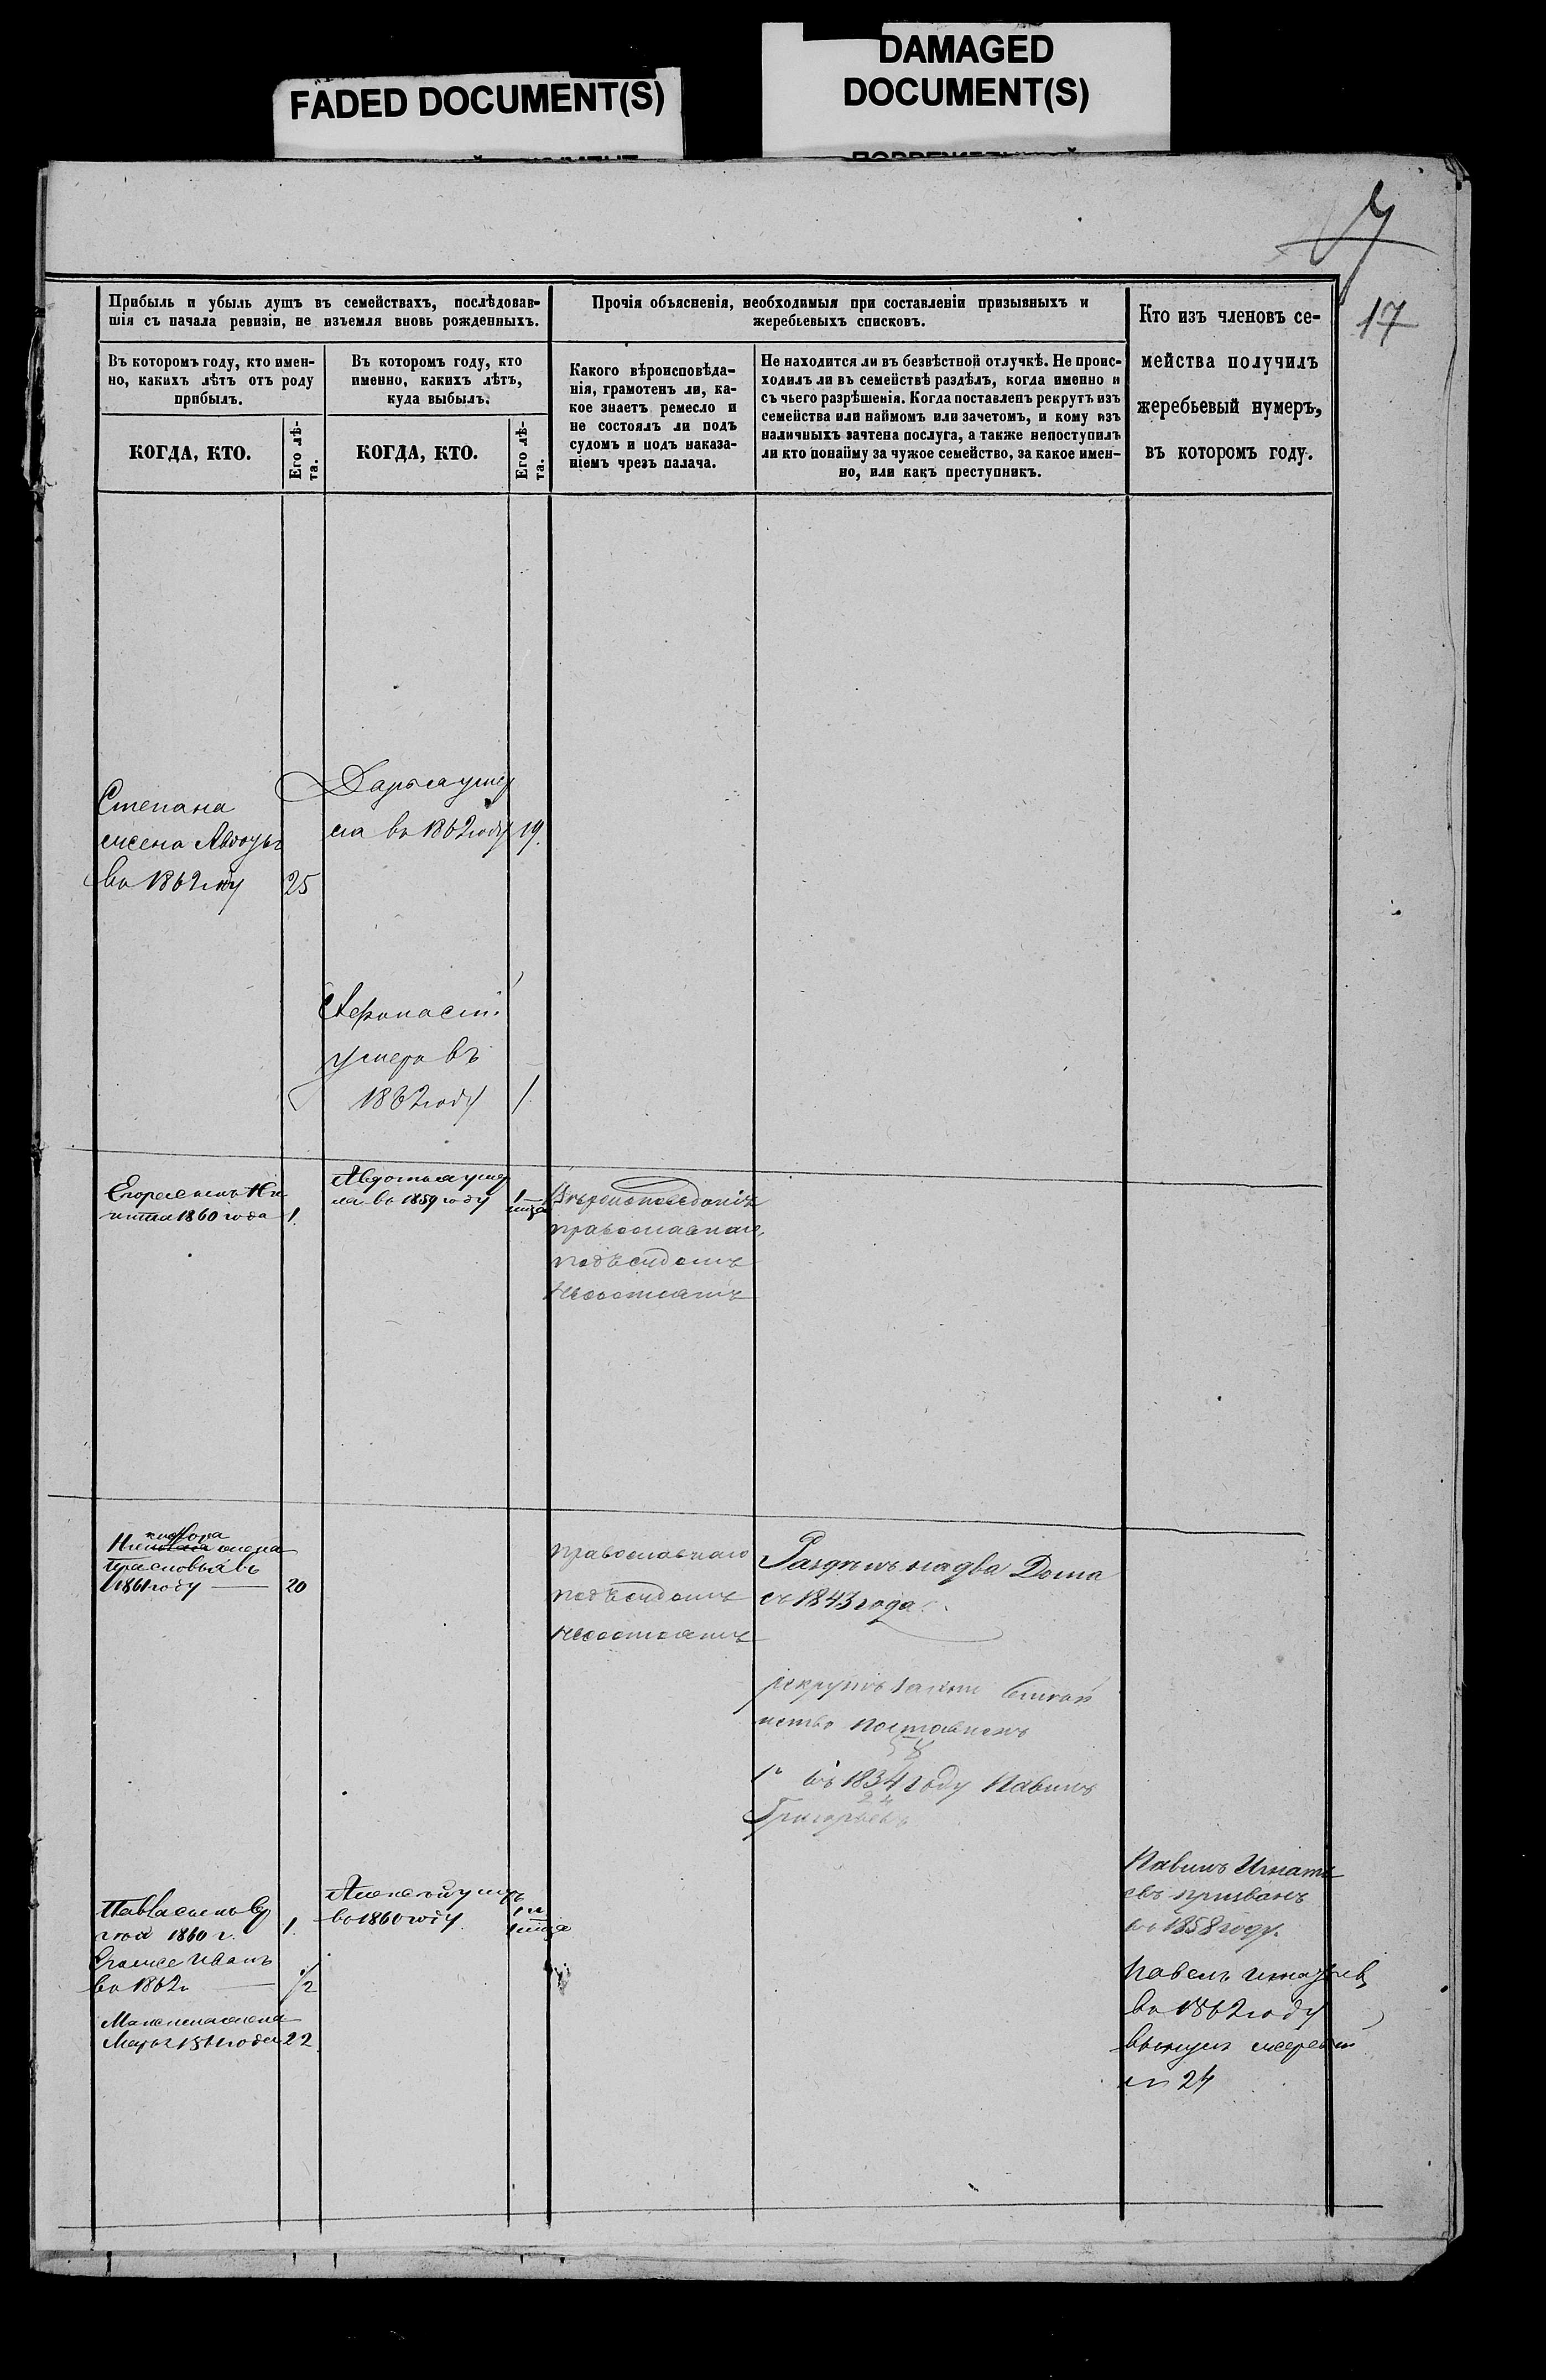 FADED DOCUMENT(S)
DAMAGED
DOCUMENT(S)
17
Прибыль и убыль душъ въ семействахъ, послѣдовав-
шія съ начала ревизіи, не изъемля вновь рожденныхъ.
Въ которомъ году, кто имен-
но, какихъ лѣтъ отъ роду
прибылъ.
КОГДА, КТО.
Его лѣ-
та.
Въ которомъ году, кто
именно, какихъ лѣтъ,
куда выбылъ.
КОГДА, КТО.
Его лѣ-
та.
Прочія объясненія, необходимыя при составленіи призывныхъ и
жеребьевыхъ списковъ.
Какого вѣроисповѣда-
нія, грамотенъ ли, ка-
кое знаетъ ремесло и
не состоялъ ли подъ
судомъ и подъ наказа-
ніемъ чрезъ палача.
Не находится ли въ безвѣстной отлучкѣ. Не проис-
ходилъ ли въ семействѣ раздѣлъ, когда именно и
съ чьего разрѣшенія. Когда поставленъ рекрутъ изъ
семейства или наймомъ или зачетомъ, и кому изъ
наличныхъ зачтена послуга, а также непоступилъ
ли кто понайму за чужое семейство, за какое имен-
но, или какъ преступникъ.
Кто изъ членовъ се-
мейства получилъ
жеребьевый нумеръ,
въ которомъ году.
Степана
жена
во 1862 году 25
Дарья умер
ла во 1862 году 19.
умеръ въ
1862 году 1
Егора сынъ Ни
кита 1860 года 1.
Авдотья умер
ла во 1859 году
Вѣроисповеданія
православнаго
подъ судомъ
несостоятъ
кифора
жена
Прасковья въ
1861 году 20
православнаго
подъ судомъ
несостоятъ
Раздѣлъ на два Дома
съ 1843 года
рекрутъ
поставленъ
1й въ 1834 году Павелъ
24
Григорьевъ
Павла сынъ
1860 г. 1.
Иванъ
во 1862 г. 1/2
жена
Марья 22
Алексѣй умеръ
во 1860 году
Павелъ Игнать
евъ призванъ
въ 1858 году.
Павелъ Игнатьевъ
во 1862 году
вынулъ жеребей
24